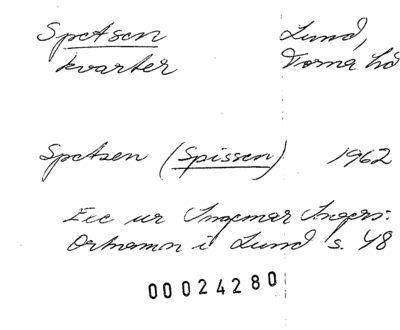 Spetsen Lund,
kvarter Torna hd
Spetsen (Spissen) 1962
Exc ur Ingemar Ingers:
Ortnamn i Lund s. 48
00024280